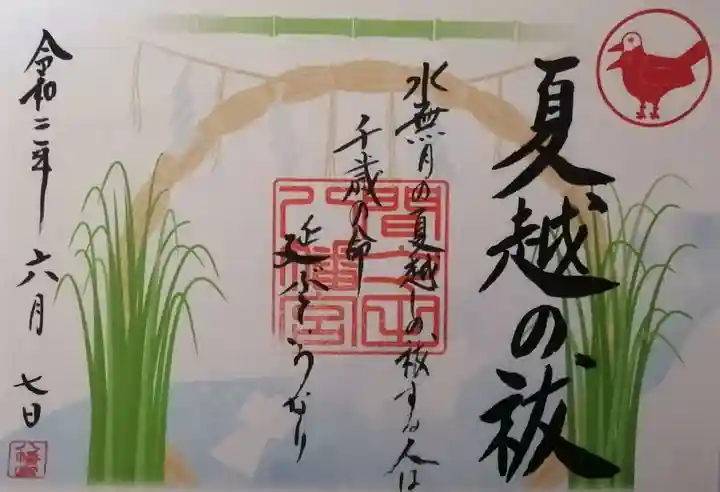 夏越の祓
水無月の夏越しの祓する人は
千歳の命
延ぶといふなり
間々田
八幡宮
令和二年六月七日